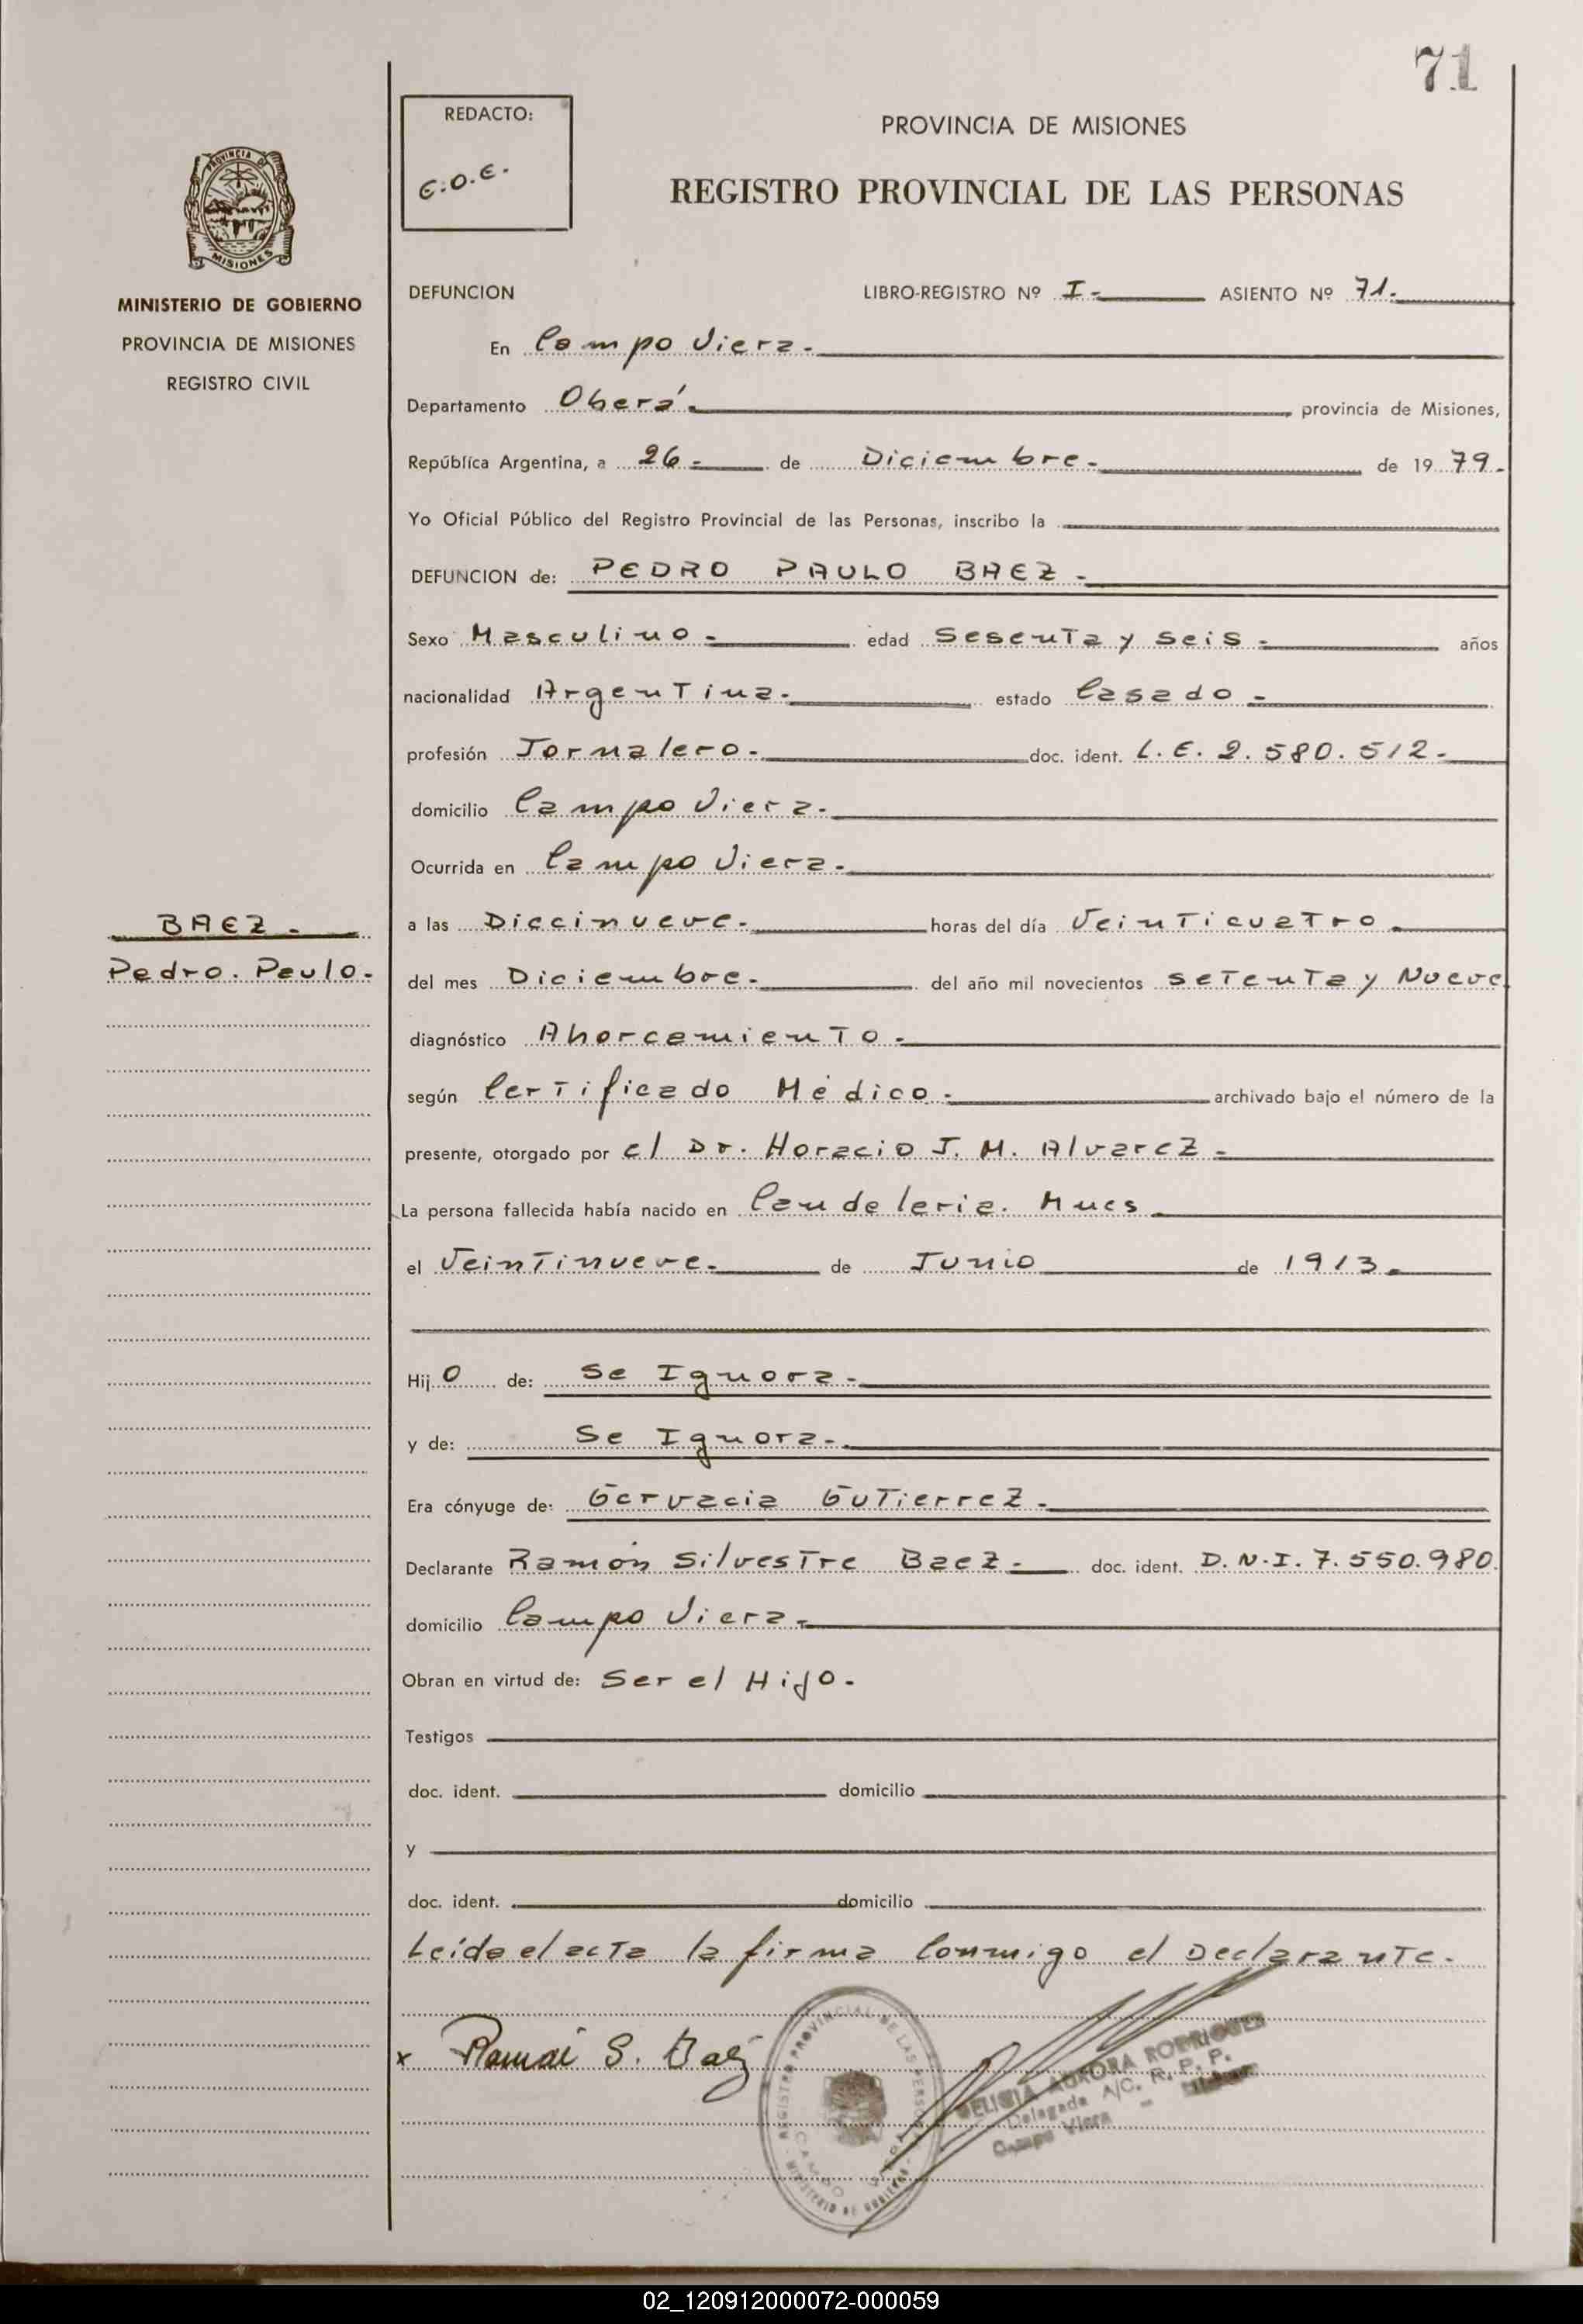 71
REDACTO:
E.O.E.
PROVINCIA DE MISIONES
REGISTRO PROVINCIAL DE LAS PERSONAS
PROVINCIA DE
MISIONES
MINISTERIO DE GOBIERNO
PROVINCIA DE MISIONES
REGISTRO CIVIL
DEFUNCION LIBRO-REGISTRO Nº I.- ASIENTO Nº 71.
En Campo Viera.
Departamento Oberá. provincia de Misiones,
República Argentina, a 26.- de Diciembre.- de 1979.-
Yo Oficial Público del Registro Provincial de las Personas, inscribo la
DEFUNCION de: PEDRO PAULO BAEZ.-
Sexo Masculino.- edad Sesenta y seis.- años
nacionalidad Argentina.- estado Casado.-
profesión Jornalero.- doc. ident. L.E. 2.580.512.-
domicilio Campo Viera.-
Ocurrida en Campo Viera.-
BAEZ.-
Pedro. Paulo.-
a las Diecinueve.- horas del día Veinticuatro.
del mes Diciembre.- del año mil novecientos setenta y Nueve
diagnóstico Ahorcamiento.-
según Certificado Médico.- archivado bajo el número de la
presente, otorgado por el Dr. Horacio J. M. Alvarez.-
La persona fallecida había nacido en Candelaria. Mnes.
el Veintinueve.- de Junio de 1913.
Hijo de: Se Ignora.-
y de: Se Ignora.-
Era cónyuge de: Gervacia Gutierrez.-
Declarante Ramón Silvestre Baez.- doc. ident. D.N.I. 7.550.980.
domicilio Campo Viera.-
Obran en virtud de: Ser el Hijo.-
Testigos
doc. ident. domicilio
y
doc. ident. domicilio
Leída el acta la firma Conmigo el Declarante.-
x Ramón S. Baez
REGISTRO PROVINCIAL DE LAS PERSONAS
CAMPO VIERA
MINISTERIO DE GOBIERNO
AURORA RODRIGUEZ
Delegada A/C. R. P. P.
Campo Viera -
02_120912000072-000059